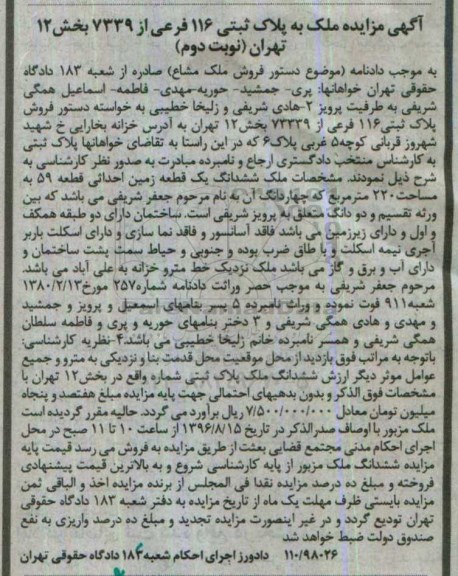 آگهی مزایده ملک به پلاک ثبتی ۱۱۶ فرعی از ۷۳۳۹ بخش۱۲
تهران (نوبت دوم)
به موجب دادنامه (موضوع دستور فروش ملک مشاع) صادره از شعبه ۱۸۳ دادگاه
حقوقی تهران خواهانها: پری- جمشید- حوریه-مهدی- فاطمه- اسماعیل همگی
شریفی به طرفیت پرویز ۲-هادی شریفی و زلیخا خطیبی به خواسته دستور فروش
پلاک ثبتی۱۱۶ فرعی از ۷۳۳۳۹ بخش۱۲ تهران به آدرس خزانه بخارایی خ شهید
شهروز قربانی کوچه۵ غربی پلاک۶ که در این راستا به تقاضای خواهانها پلاک ثبتی
به کارشناس منتخب دادگستری ارجاع و نامبرده مبادرت به صدور نظر کارشناسی به
شرح ذیل نمودند. مشخصات ملک ششدانگ یک قطعه زمین احداثی قطعه ۵۹ به
مساحت۲۲۰ مترمربع که چهاردانگ آن به نام مرحوم جعفر شریفی می باشد که بین
ورثه تقسیم و دو دانگ متعلق به پرویز شریفی است. ساختمان دارای دو طبقه همکف
و اول و دارای زیرزمین می باشد فاقد آسانسور و فاقد نما سازی و دارای اسکلت باربر
آجری نیمه اسکلت و با طاق ضرب بوده و جنوبی و حیاط سمت پشت ساختمان و
دارای آب و برق و گاز می باشد ملک نزدیک خط مترو خزانه به علی آباد می باشد.
مرحوم جعفر شریفی به موجب حصر وراثت دادنامه شماره۲۵۷ مورخ۱۳۸۰/۲/۱۳
شعبه۹۱۱ فوت نموده و وراث نامبرده ۵ پسر بنامهای اسمعیل و پرویز و جمشید
و مهدی و هادی همگی شریفی و ۳ دختر بنامهای حوریه و پری و فاطمه سلطان
همگی شریفی و همسر نامبرده خانم زلیخا خطیبی می باشد.۴-نظریه کارشناسی:
باتوجه به مراتب فوق بازدید از محل موقعیت محل قدمت بنا و نزدیکی به مترو و جمیع
عوامل موثر دیگر ارزش ششدانگ ملک پلاک ثبتی شماره واقع در بخش۱۲ تهران با
مشخصات فوق الذکر و بدون بدهیهای احتمالی جهت پایه مزایده مبلغ هفتصد و پنجاه
میلیون تومان معادل ۷/۵۰۰/۰۰۰/۰۰۰ ریال برآورد می گردد. حالیه مقرر گردیده است
ملک مزبور با اوصاف صدرالذکر در تاریخ ۱۳۹۶/۸/۱۵ از ساعت ۱۰ تا ۱۱ صبح در محل
اجرای احکام مدنی مجتمع قضایی بعثت از طریق مزایده به فروش می رسد قیمت پایه
مزایده ششدانگ ملک مزبور از پایه کارشناسی شروع و به بالاترین قیمت پیشنهادی
فروخته و مبلغ ده درصد مزایده نقدا فی المجلس از برنده مزایده اخذ و الباقی ثمن
مزایده بایستی ظرف مهلت یک ماه از تاریخ مزایده به دفتر شعبه ۱۸۳ دادگاه حقوقی
تهران تودیع گردد و در غیر اینصورت مزایده تجدید و مبلغ ده درصد واریزی به نفع
صندوق دولت ضبط خواهد شد
۱۱۰/۹۸۰۲۶ دادورز اجرای احکام شعبه۱۸۳ دادگاه حقوقی تهران